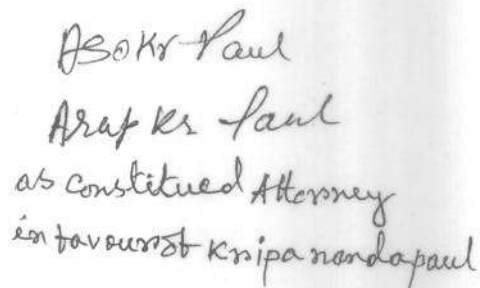 Asokr Paul
Arup Kr Paul
as constitued Attorney
in favour of Knipanandapaul